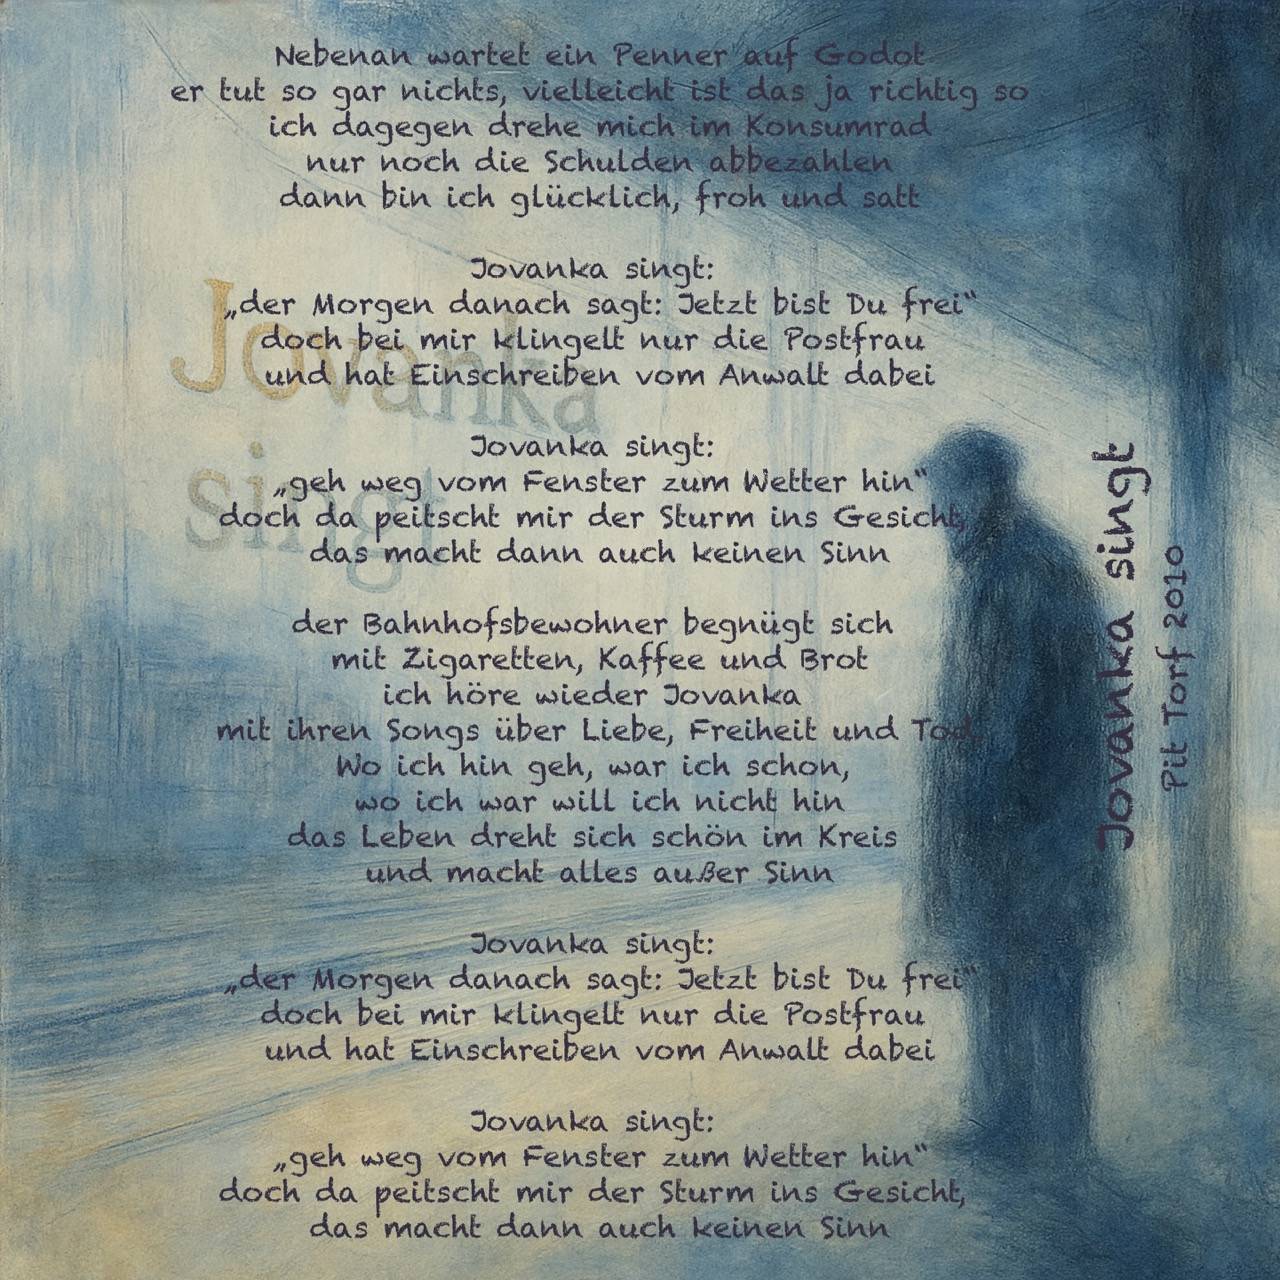 Nebenan wartet ein Penner auf Godot
er tut so gar nichts, vielleicht ist das ja richtig so
ich dagegen drehe mich im Konsumrad
nur noch die Schulden abbezahlen
dann bin ich glücklich, froh und satt
Jovanka singt:
„der Morgen danach sagt: Jetzt bist Du frei“
doch bei mir klingelt nur die Postfrau
und hat Einschreiben vom Anwalt dabei
Jovanka singt:
„geh weg vom Fenster zum Wetter hin“
doch da peitscht mir der Sturm ins Gesicht,
das macht dann auch keinen Sinn
der Bahnhofsbewohner begnügt sich
mit Zigaretten, Kaffee und Brot
ich höre wieder Jovanka
mit ihren Songs über Liebe, Freiheit und Tod,
Wo ich hin geh, war ich schon,
wo ich war will ich nicht hin
das Leben dreht sich schön im Kreis
und macht alles außer Sinn
Jovanka singt:
„der Morgen danach sagt: Jetzt bist Du frei“
doch bei mir klingelt nur die Postfrau
und hat Einschreiben vom Anwalt dabei
Jovanka singt:
„geh weg vom Fenster zum Wetter hin“
doch da peitscht mir der Sturm ins Gesicht,
das macht dann auch keinen Sinn
Jovanka
singt
Jovanka singt
Pit Torf 2010